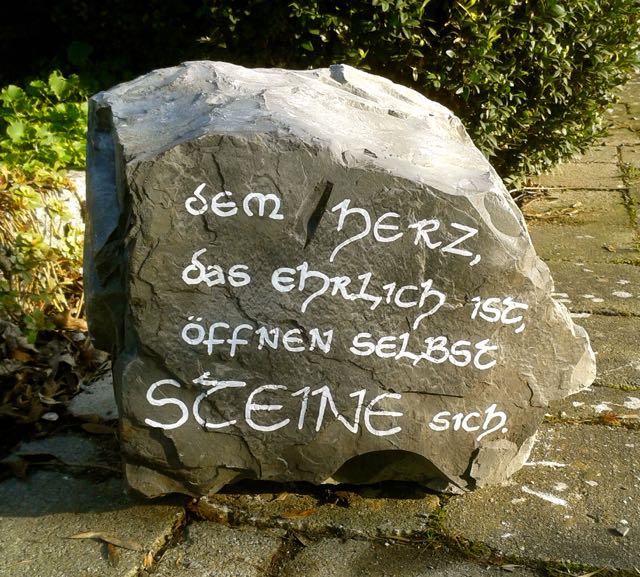 dem HERZ,
das EHRLICH IST,
ÖFFNEN SELBST
STEINE SICH.